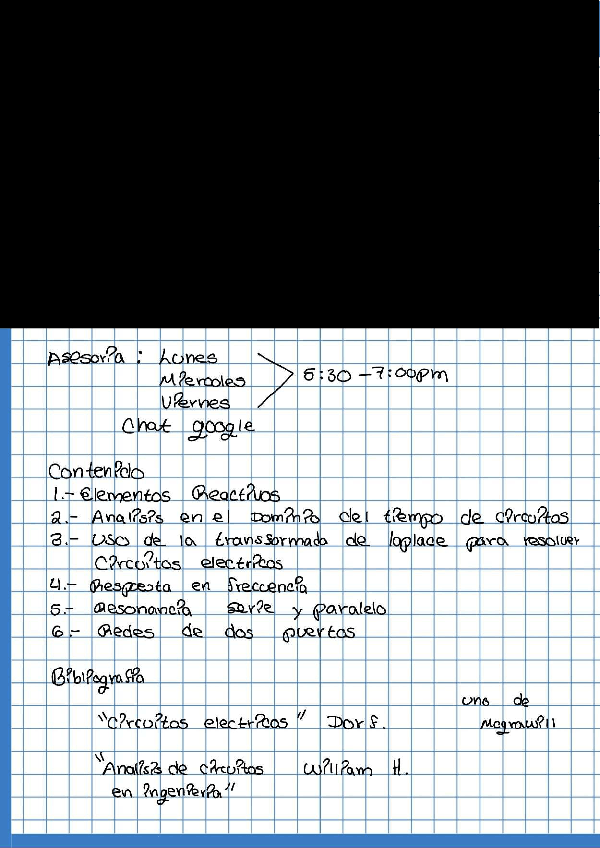 Asesoria : Lunes
Miercoles
Viernes
5:30 - 7:00pm
Chat google
Contenido
1.- Elementos Reactivos
2.- Analisis en el Dominio del tiempo de circuitos
3.- Uso de la transformada de laplace para resolver
Circuitos electricos
4.- Respuesta en freccencia
5.- Resonancia serie y paralelo
6.- Redes de dos puertos
Bibliografia
uno de
"Circuitos electricos" Dorf. Mcgrawill
"Analisis de circuitos William H.
en ingenieria"